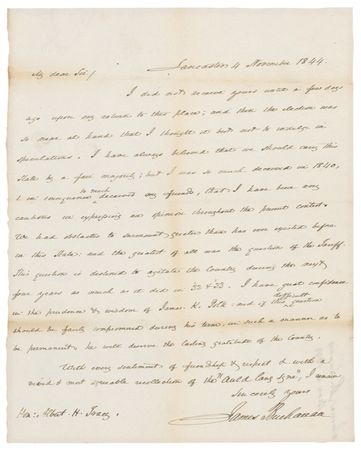 Lancaster 4 November 1844.
My dear Sir/
I did not receive yours until a few days
ago upon my return to this place; and then the election was
so near at hand that I thought it best not to indulge in
speculations. I have always believed that we should carry this
State by a fair majority; but I was so much deceived in 1840,
& in consequence so much deceived my friends, that I have been very
cautious in expressing an opinion throughout the present contest.
We had obstacles to surmount greater than has ever existed before
in this State: and the greatest of all was the question of the Tariff.
This question is destined to agitate the Country during the next
four years as much as it did in 32 & 33. I have great confidence
in the prudence & wisdom of James. K. Polk: and if this difficult question
should be fairly compromised during his term, in such a manner as to
be permanent, he will deserve the lasting gratitude of the Country.
With every sentiment of friendship & respect & with a
vivid & most agreeable recollection of the "Auld lang syne", I remain
Sincerely yours
James Buchanan
Hon: Albert. H. Tracy.